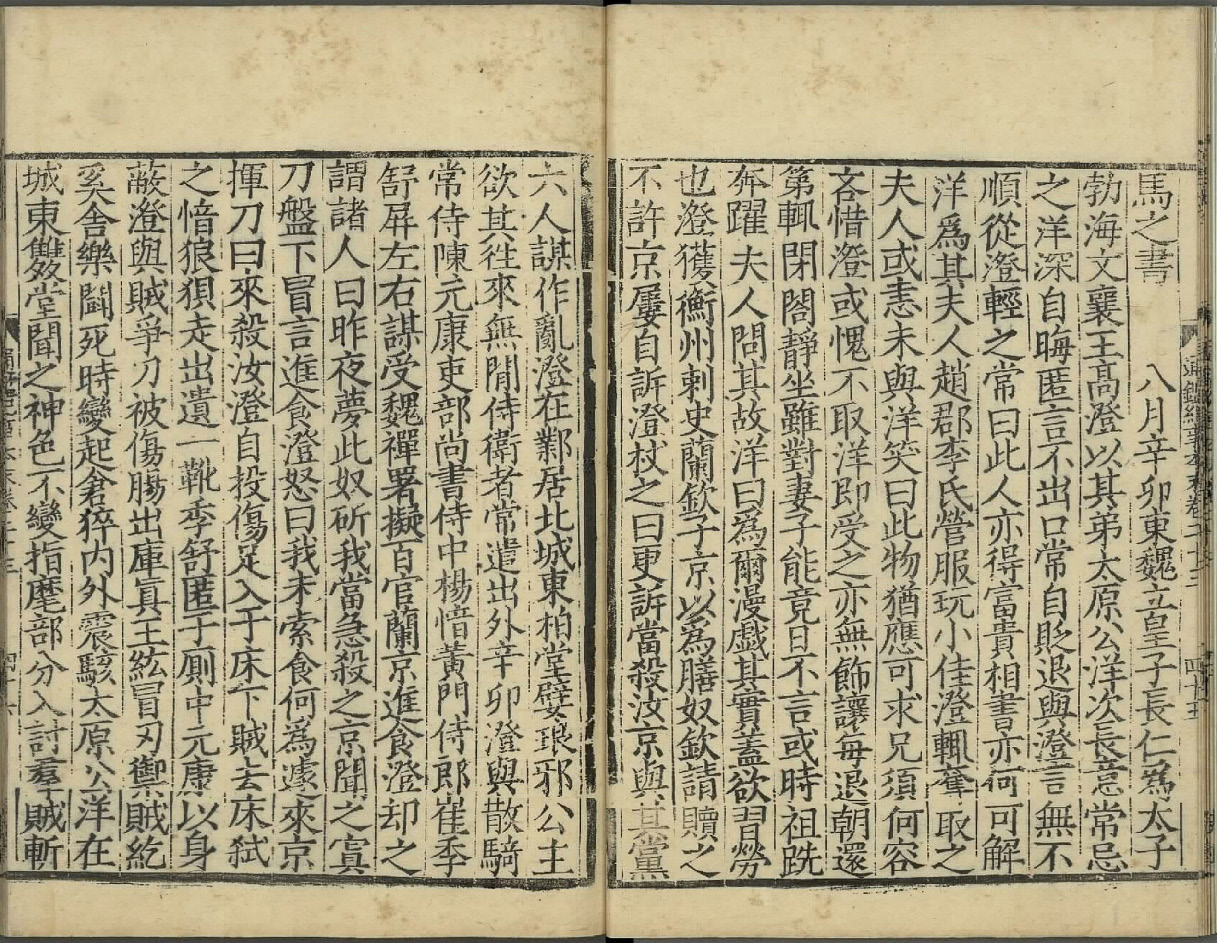 馬之書　　八月辛卯東魏立皇子長仁爲太子
勃海文襄王高澄以其弟太原公洋次長意常忌
之洋深自晦匿言不出口常自貶退與澄言無不
順從澄輕之常曰此人亦得富貴相書亦何可解
洋爲其夫人趙郡李氏營服玩小佳澄輒奪取之
夫人或恚未與洋笑曰此物猶應可求兄須何容
吝惜澄或愧不取洋即受之亦無飾讓每退朝還
第輒閉閤靜坐雖對妻子能竟日不言或時袒跣
奔躍夫人問其故洋曰爲爾漫戲其實蓋欲習勞
也澄獲衡州刺史蘭欽子京以為膳奴欽請贖之
不許京屢自訴澄杖之曰更訴當殺汝京與其黨
六人謀作亂澄在鄴居北城東柏堂嬖琅邪公主
欲其往來無間侍衛者常遣出外辛卯澄與散騎
常侍陳元康吏部尚書侍中楊愔黃門侍郎崔季
舒屏左右謀受魏禪署擬百官蘭京進食澄却之
謂諸人曰昨夜夢此奴斫我當急殺之京聞之寘
刀盤下冒言進食澄怒曰我未索食何為遽來京
揮刀曰來殺汝澄自投傷足入于床下賊去床弒
之愔狼狽走出遺一靴季舒匿于廁中元康以身
蔽澄與賊爭刀被傷腸出庫真王紘冒刃禦賊紇
奚舍樂鬪死時變起倉猝內外震駭太原公洋在
城東雙堂聞之神色不變指麾部分入討羣賊斬